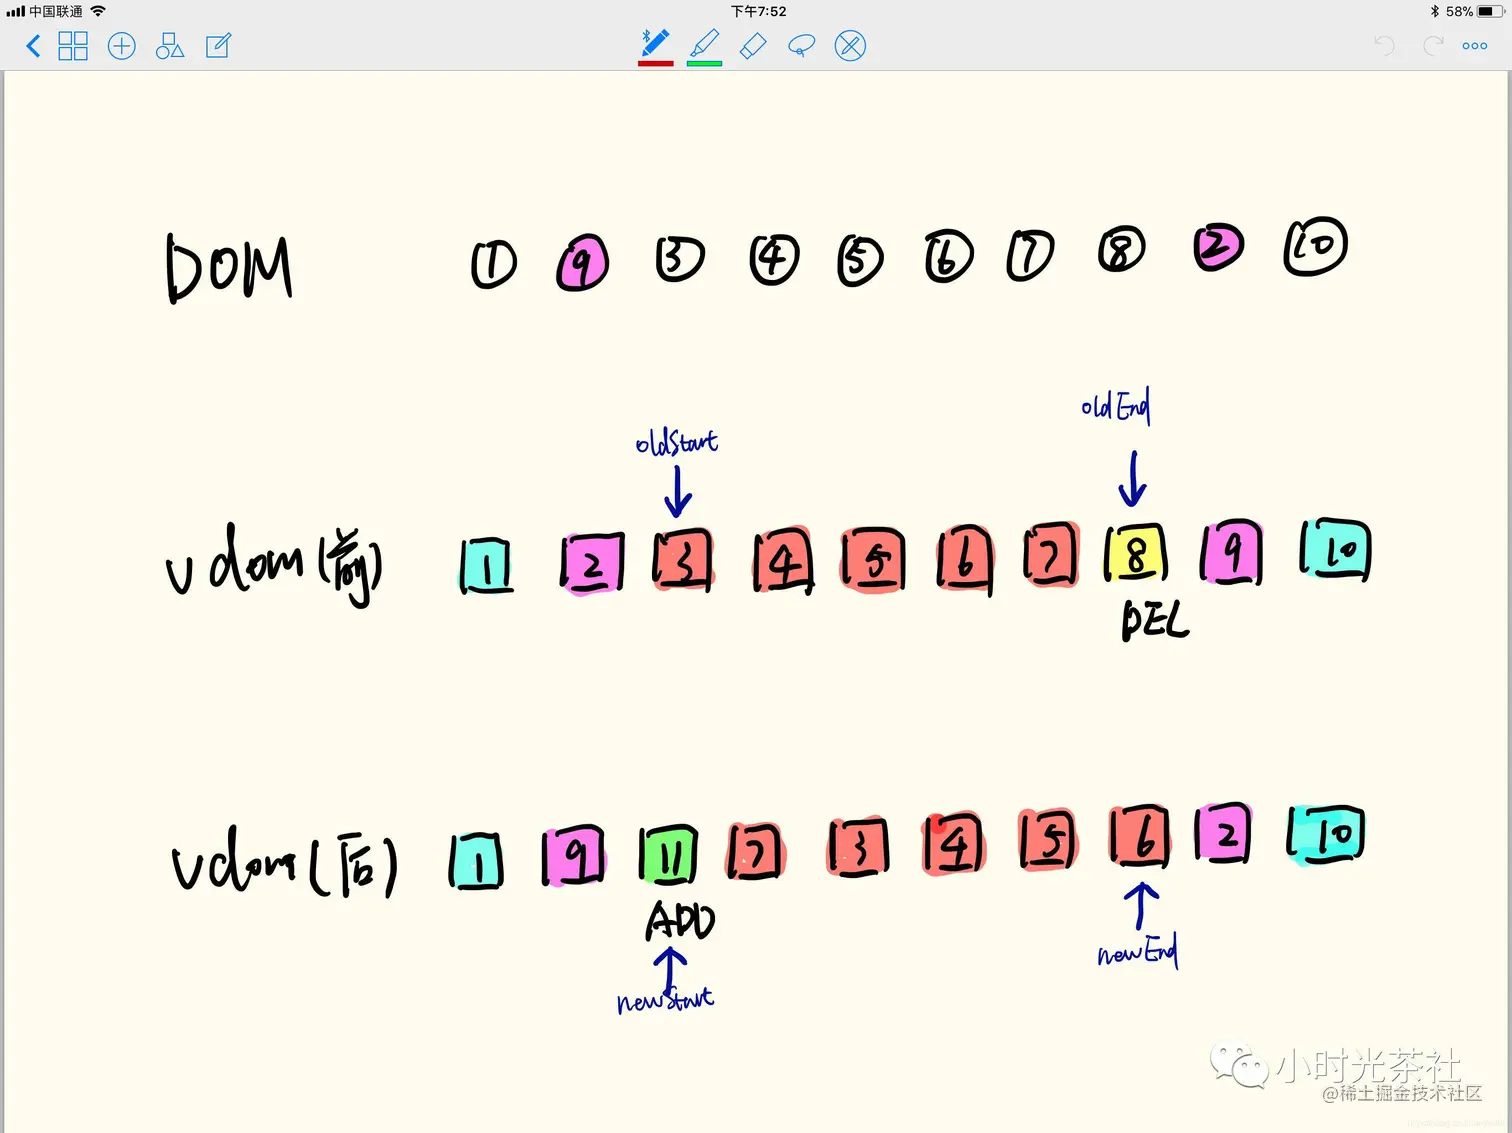 中国联通 下午7:52 58%
DOM 1 9 3 4 5 6 7 8 2 10
oldStart oldEnd
vdom(前) 1 2 3 4 5 6 7 8 9 10
DEL
vdom(后) 1 9 11 7 3 4 5 6 2 10
ADD
newStart newEnd
小时光茶社
@稀土掘金技术社区